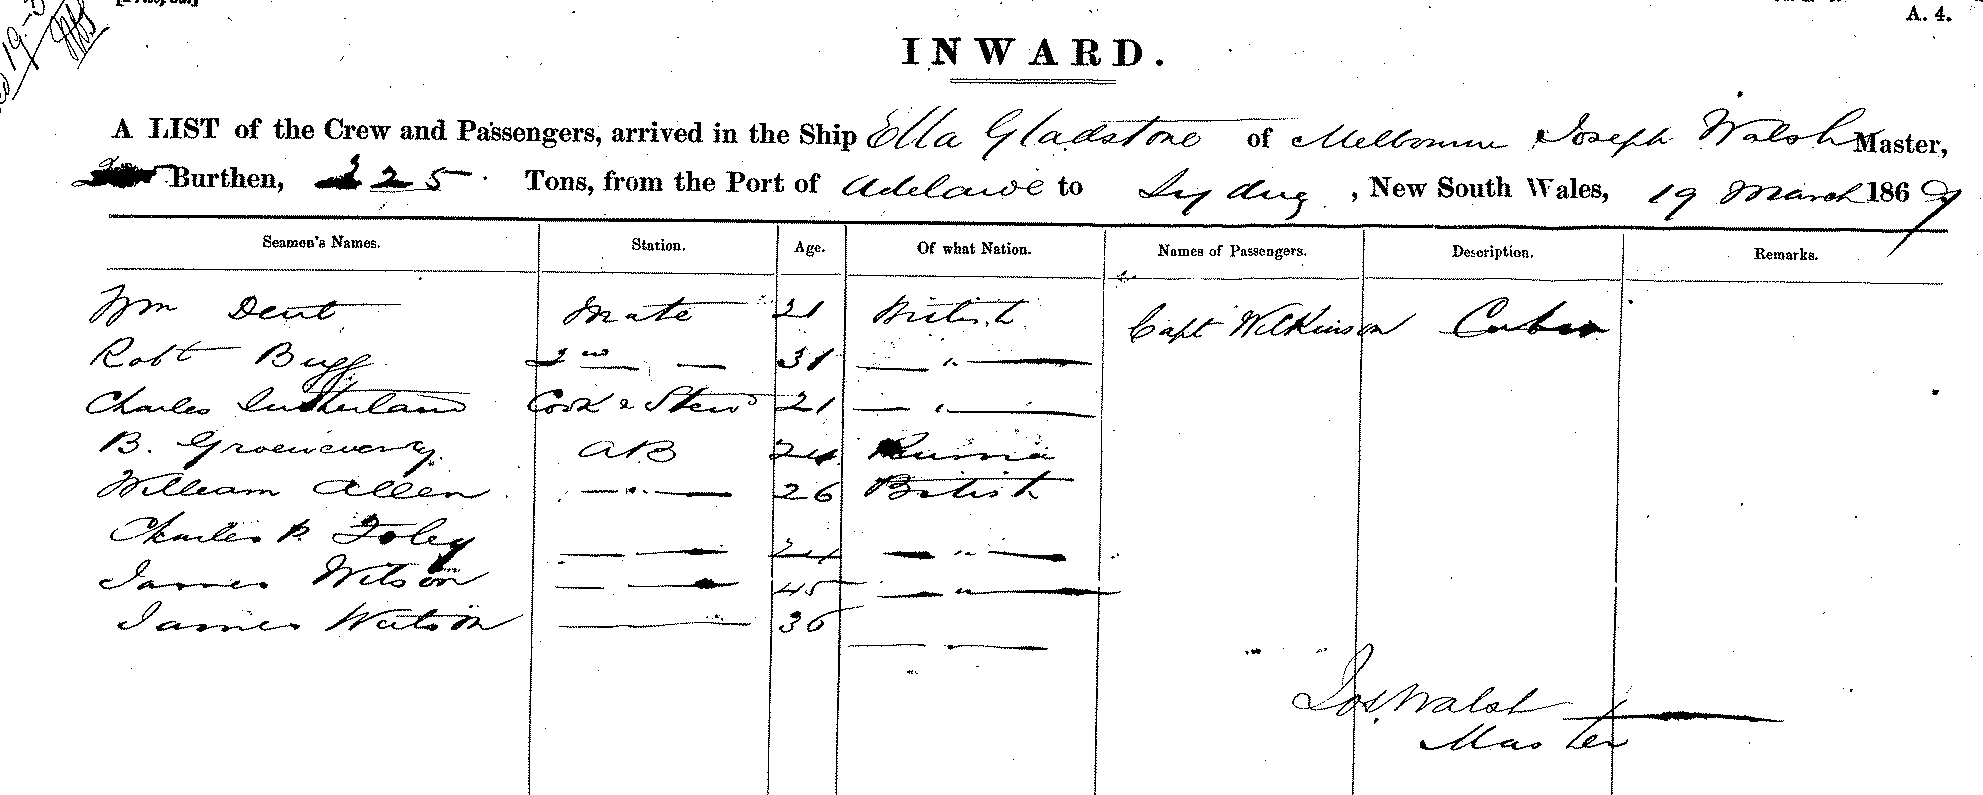 A. 4.
INWARD.
A LIST of the Crew and Passengers, arrived in the Ship Ella Gladstone of Melbourne Joseph Walsh Master,
Burthen, 225 Tons, from the Port of Adelaide to Sydney, New South Wales, 19 March 1869
Seamen's Names. Station. Age. Of what Nation. Names of Passengers. Description. Remarks.
Wm Dent Mate 21 British Capt Wilkinson Cabin
Robt Bugg 2nd — 31 — " —
Charles Sutherland Cook & Stewd 21 — " —
B. AB 24 Russia
William Allen — " — 26 British
Charles P. Foley — — 24 — " —
James Wilson — — 45 — " —
James Watson — 36 — —
Jos. Walsh
Master